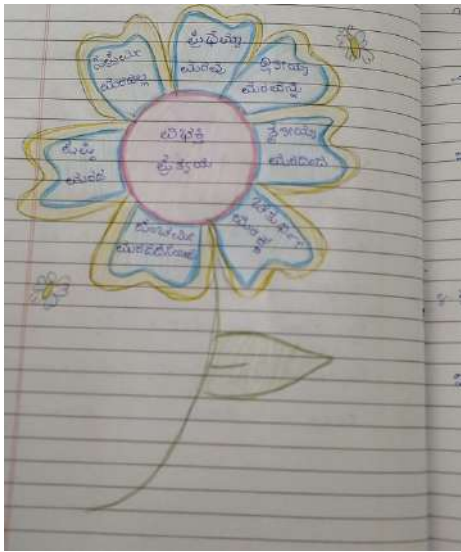 ವಿಭಕ್ತಿ
ಪ್ರತ್ಯಯ
ಪ್ರಥಮಾ
ಮರವು
ದ್ವಿತೀಯಾ
ಮರವನ್ನು
ತೃತೀಯಾ
ಮರದಿಂದ
ಚತುರ್ಥೀ
ಮರಕ್ಕೆ
ಪಂಚಮೀ
ಮರದದೆಸೆಯಿಂದ
ಷಷ್ಠಿ
ಮರದ
ಸಪ್ತಮೀ
ಮರದಲ್ಲಿ